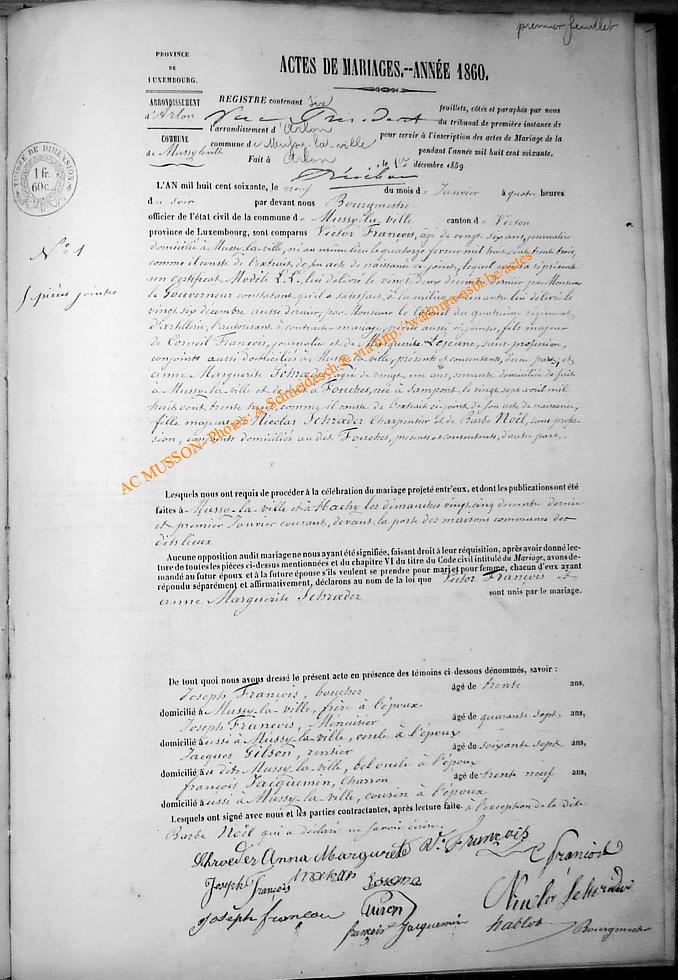 premier feuillet
PROVINCE
DE
LUXEMBOURG.
ARRONDISSEMENT
d'Arlon
COMMUNE
de Mussy la ville
TIMBRE DE DIMENSION
1 fr.
60 c.
ACTES DE MARIAGES.--ANNÉE 1860.
REGISTRE contenant six feuillets, côtés et paraphés par nous
Vice Président du tribunal de première instance de
l'arrondissement d'Arlon pour servir à l'inscription des actes de Mariage de la
commune de Mussy-la-ville pendant l'année mil huit cent soixante.
Fait à Arlon le 17 décembre 1859
L'AN mil huit cent soixante, le neuf du mois de Janvier à quatre heures
du soir par devant nous Bourgmestre
officier de l'état civil de la commune de Mussy-la-ville canton de Virton
province de Luxembourg, sont comparus Victor François, âgé de vingt six ans, journalier
domicilié à Mussy-la-ville, né au même lieu le quatorze février mil huit cent trente trois,
comme il conste de l'extrait de son acte de naissance ci-joint, lequel nous a représenté
un certificat Modèle L.L. lui délivré le vingt deux décembre dernier par Monsieur
le Gouverneur constatant qu'il a satisfait à la milice, un autre lui délivré le
vingt six décembre aussi dernier, par Monsieur le Colonel du quatrième régiment
d'artillerie, l'autorisant à contracter mariage, pièces aussi ci-jointes, fils majeur
de Corneil François, journalier et de Marguerite Lejeune, sans profession,
conjoints aussi domiciliés à Mussy-la-ville, présents et consentants, d'une part, et
Anne Marguerite Schrœder, âgée de vingt un ans, servante domiciliée de fait
à Mussy-la-ville et de droit à Fouches, née à Sampont le vingt sept avril mil
huit cent trente huit comme il conste de l'extrait ci-joint de son acte de naissance,
fille majeure de Nicolas Schrœder Charpentier et de Barbe Noël, sans profes-
sion, conjoints domiciliés au dit Fouches, présents et consentants, d'autre part.
N° 1
5 pièces jointes
Lesquels nous ont requis de procéder à la célébration du mariage projeté entr'eux, et dont les publications ont été
faites à Mussy-la-ville et à Hachy les dimanches vingt cinq décembre dernier
et premier Janvier courant, devant la porte des maisons communes des
dits lieux
Aucune opposition audit mariage ne nous ayant été signifiée, faisant droit à leur réquisition, après avoir donné lec-
ture de toutes les pièces ci-dessus mentionnées et du chapitre VI du titre du Code civil intitulé du Mariage, avons de-
mandé au futur époux et à la future épouse s'ils veulent se prendre pour mari et pour femme, chacun d'eux ayant
répondu séparément et affirmativement, déclarons au nom de la loi que Victor François et
anne Marguerite Schrœder sont unis par le mariage.
De tout quoi nous avons dressé le présent acte en présence des témoins ci-dessous dénommés, savoir :
Joseph François, boucher âgé de trente ans,
domicilié à Mussy-la-ville, frère à l'époux.
Joseph François, Menuisier âgé de quarante sept ans,
domicilié aussi à Mussy-la-ville, oncle à l'époux
Jacques Gilson, rentier âgé de soixante sept ans,
domicilié au dit Mussy-la-ville, bel oncle à l'époux
françois Jacquemin, Charron âgé de trente neuf ans,
domicilié aussi à Mussy-la-ville, cousin à l'époux
Lesquels ont signé avec nous et les parties contractantes, après lecture faite. à l'exception de la dite
Barbe Noël qui a déclaré ne savoir écrire.
Schroeder Anna Margurete Vr François C françois
Joseph François
Joseph françois françois Jacquemin Bourgmestre
AC MUSSON- Photos: A.Schneidesch © via http://wallonia-asbl.be/actes